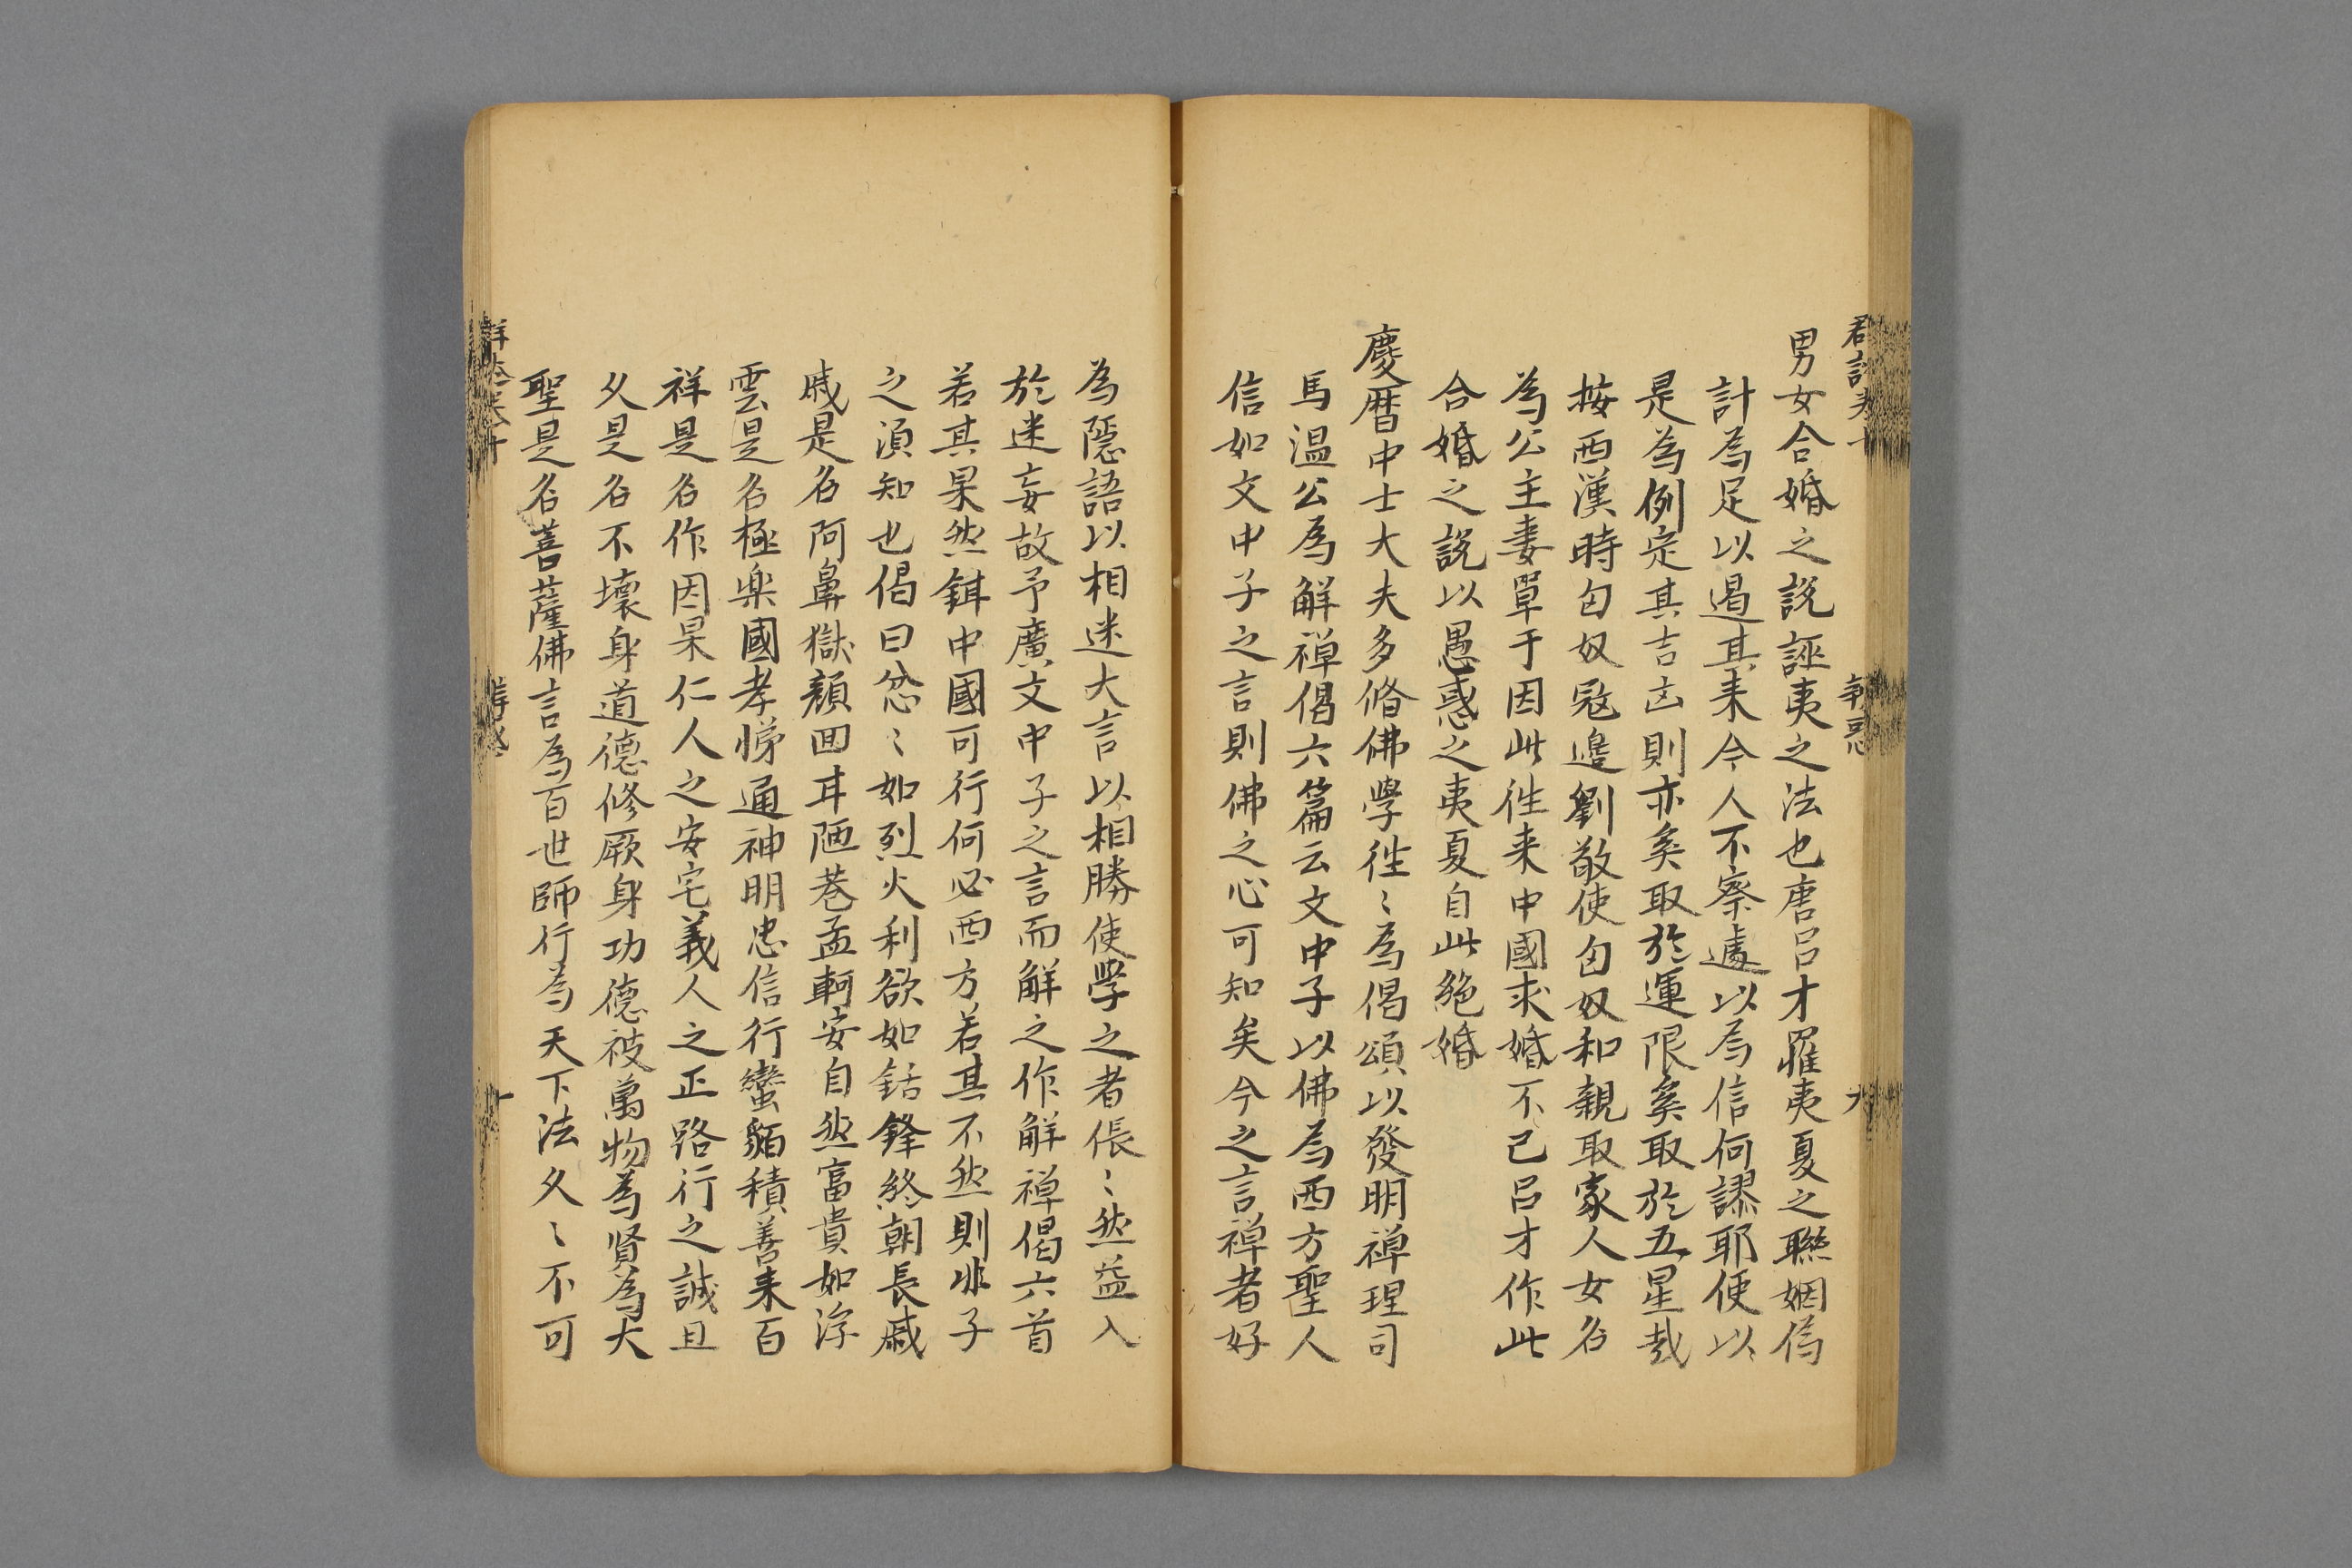 男女合婚之説誣夷之法也唐呂才罹夷夏之聯姻偽
計為足以遏其来今人不察遽以為信何謬耶便以
是為例定其吉凶則亦奚取於運限奚取於五星哉
按西漢時匈奴寇邊劉敬使匈奴和親取家人女名
為公主妻單于因此徃来中國求婚不已呂才作此
合婚之說以愚惑之夷夏自此絕婚
慶曆中士大夫多脩佛學徃〻為偈頌以發明禅理司
馬温公為解禅偈六篇云文中子以佛為西方聖人
信如文中子之言則佛之心可知矣今之言禅者好
為隱語以相迷大言以相勝使學之者倀〻然益入
於迷妄故予廣文中子之言而解之作解禅偈六首
若其果然鉺中國可行何必西方若其不然則非子
之湏知也偈曰忿〻如烈火利欲如銛鋒終朝長戚
戚是名阿鼻獄顔回甘陋巷孟軻安自然富貴如浮
雲是名極楽國孝悌通神明忠信行蠻貊積善来百
祥是名作因果仁人之安宅義人之正路行之誠且
久是名不壞身道德修厥身功德被萬物為賢為大
聖是名菩薩佛言為百世師行為天下法久〻不可